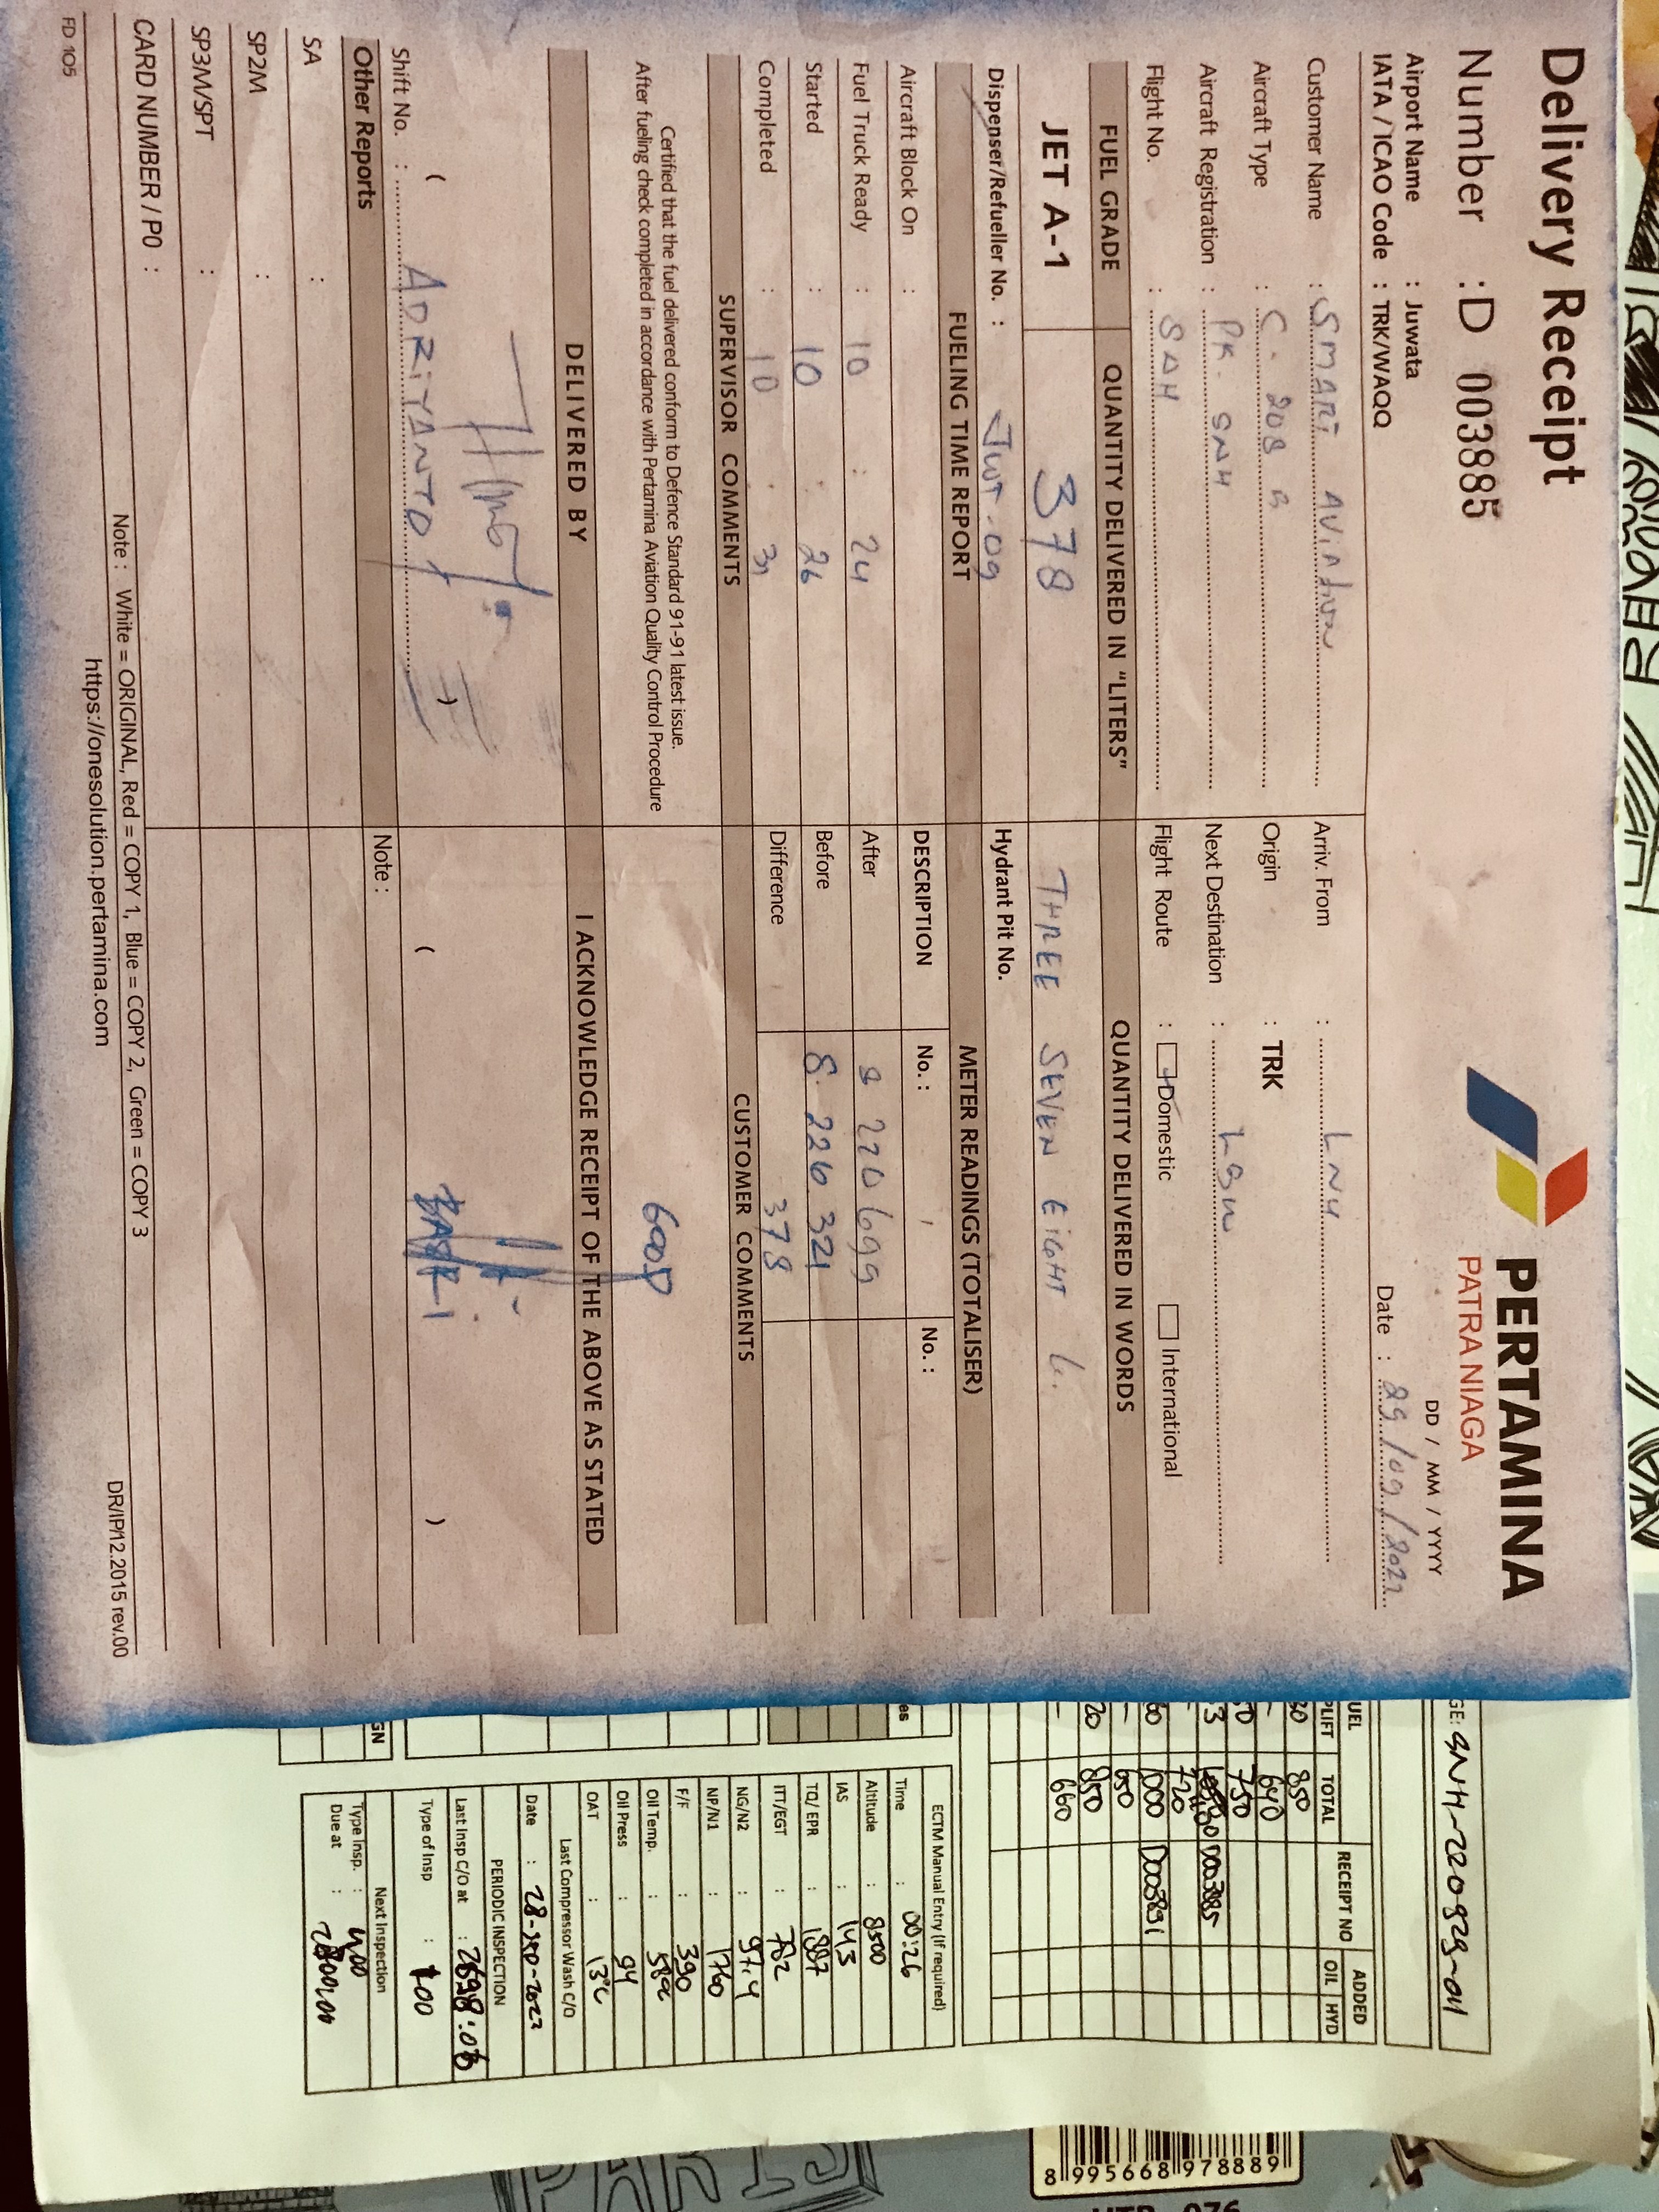 Delivery Receipt
Number : D 003885
PERTAMINA
PATRA NIAGA
DD / MM / YYYY
Airport Name : Juwata
IATA / ICAO Code : TRK/WAQQ
Date : 29/09/2022
Customer Name : SMART AVIATION
Arriv. From : LNU
Aircraft Type : C. 208 B
Origin : TRK
Aircraft Registration : PK. SNH
Next Destination : LBW
Flight No. :
Flight Route : Domestic International
FUEL GRADE QUANTITY DELIVERED IN "LITERS" QUANTITY DELIVERED IN WORDS
JET A-1 378 THREE SEVEN EIGHT L.
Dispenser/Refueller No. : JWT-09 Hydrant Pit No.
FUELING TIME REPORT METER READINGS (TOTALISER)
Aircraft Block On : DESCRIPTION No. : No. :
Fuel Truck Ready : 10 : 24 After
Started : 10 : 26 Before 8. 226 321
Completed : 10 Difference 378
SUPERVISOR COMMENTS CUSTOMER COMMENTS
Certified that the fuel delivered conform to Defence Standard 91-91 latest issue.
After fueling check completed in accordance with Pertamina Aviation Quality Control Procedure
GOOD
DELIVERED BY I ACKNOWLEDGE RECEIPT OF THE ABOVE AS STATED
Shift No. : ( ADRIYANTO )
( BASRI )
Other Reports Note :
SA :
SP2M :
SP3M/SPT :
CARD NUMBER / PO :
Note : White = ORIGINAL, Red = COPY 1, Blue = COPY 2, Green = COPY 3
FD 105
https://onesolution.pertamina.com
DR/IP/12.2015 rev.00
GE: SNH-220929-011
UEL
PLIFT TOTAL RECEIPT NO ADDED
OIL HYD
850
640
750
720
D003885
000 D003891
650
20 850
660
es
ECTM Manual Entry (If required)
Time : 00:26
Altitude : 8500
IAS : 143
TQ/ EPR : 1887
ITT/EGT : 702
NG/N2 : 97.4
NP/N1 : 1760
F/F : 390
Oil Temp. : 58°C
Oil Press : 94
OAT : 13°C
Last Compressor Wash C/O
Date :
PERIODIC INSPECTION
Last Insp C/O at : 2698:08
Type of Insp : 100
Next Inspection
Type Insp. : 400
Due at :
GN
8 995668 978889
PARIS